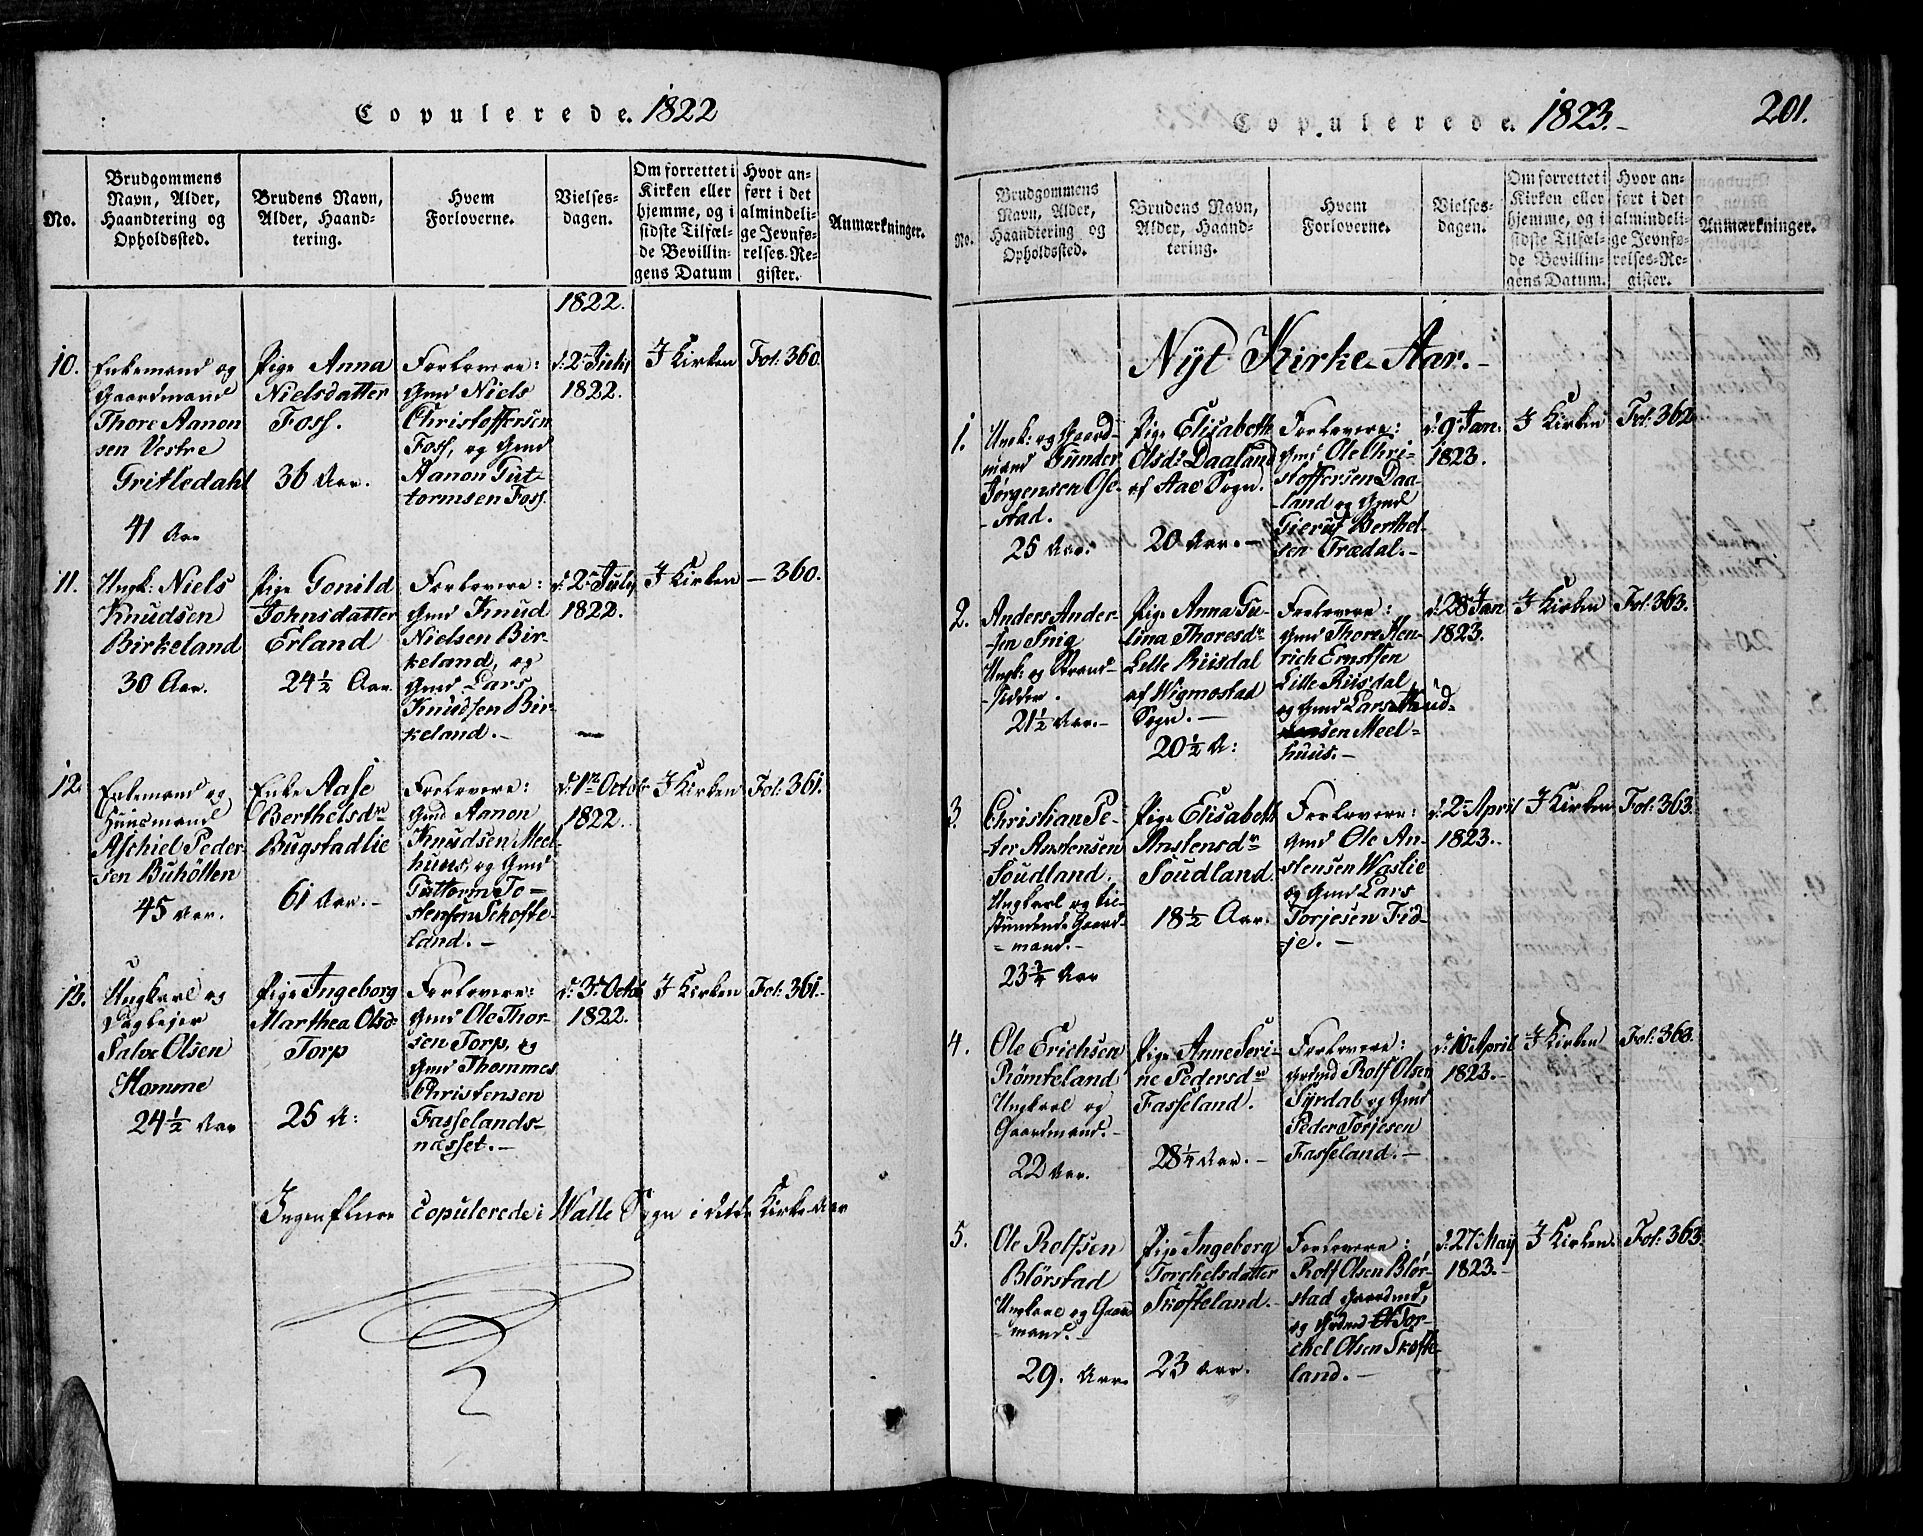 Copulerede. 1822
No.
Brudgommens
Navn, Alder,
Haandtering og
Opholdssted.
Brudens Navn,
Alder, Haand-
tering.
Hvem
Forloverne.
Vielses-
dagen.
Om forrettet i
Kirken eller
hjemme, og i
sidste Tilfæl-
de Bevillin-
gens Datum
Hvor an-
ført i det
almindeli-
ge Jevnfø-
relses-Re-
gister.
Anmærkninger.
1822.
10.
Enkemand og
Gaardmand
Thore Aanon
sen Vestre
Gritledahl
41 Aar
Pige Anna
Nielsdatter
Foss.
36 Aar.
Forlovere:
Gmd Niels
Christoffersen
Foss, og Gmd
Aanon Gut-
tormsen Foss.
d: 2 July
1822.
I Kirken
Fol: 360.
11.
Ungk: Niels
Knudsen
Birkeland
30 Aar.
Pige Gonild
Johnsdatter
Erland
24½ Aar.
Forlovere:
Gmd Knud
Nielsen Bir-
keland, og
Gmd Lars
Knudsen Bir-
keland.-
d: 2 July
1822.
I Kirken
- 360.
12.
Enkemand og
Huusmand
Aschiel Peder
sen Buhölten
45 Aar.
Enke Aase
Berthelsdr
Bugstadlie
61 Aar.-
Forlovere:
Gmd Aanon
Knudsen Meel
huus, og Gmd
Guttorm To-
stensen Schofte-
land.-
d: 1 Octob
1822.
I Kirken
Fol: 361.
13.
Ungkarl og
Dagleier
Salve Olsen
Homme
24½ Aar
Pige Ingeborg
Marthea Olsd
Torp
25 A:
Forlovere:
Gmd Ole Thor-
sen Torp, og
Gmd Thommes
Christensen
Fasselands-
næsset.-
d: 3 Octob
1822.
I Kirken
Fol: 361.-
Ingen flere copulerede i Walle Sogn i dette Kirke Aar
Copulerede. 1823.-
201.
No.
Brudgommens
Navn, Alder,
Haandtering og
Opholdssted.
Brudens Navn,
Alder, Haand-
tering.
Hvem
Forloverne.
Vielses-
dagen.
Om forrettet i
Kirken eller
hjemme, og i
sidste Tilfæl-
de Bevillin-
gens Datum.
Hvor an-
ført i det
almindeli-
ge Jevnfø-
relses-Re-
gister.
Anmærkninger.
Nyt Kirke-Aar.-
1.
Ungk: og Gaard-
mand Gunder
Jørgensen Ose-
-stad.
25 Aar.
Pige Elisabeth
Olsdr Daaland
af Aae Sogn.
20 Aar.-
Forlovere:
Gmd Ole Chri-
stoffersen Daa-
-land og Gmd
Gierut Berthel-
sen Trædal.-
d: 9 Jan:
1823.
I Kirken
Fol: 362
2.
Anders Ander-
-sen Snig
Ungk: og Strand-
-sidder.
21½ Aar.-
Pige Anna Gu-
lina Thoresdr
Lille Riisdal
af Wigmostad
Sogn.-
20½ A:
Forlovere:
Gmd Thore Hen-
rich Ernstsen
Lille Riisdal
og Gmd Lars Knud-
sen Meel-
huus.-
d: 28 Jan
1823.
I Kirken
Fol: 363.
3.
Christian Pe-
ter Anstensen
Soudland.
Ungkarl og til-
stundende Gaard-
-mand.-
23¾ Aar
Pige Elisabeth
Anstensdr
Soudland.
18½ Aar.
Forlovere:
Gmd Ole An-
stensen Waslie
og Gmd Lars
Torjesen Tid-
je.-
d: 2 April
1823.-
I Kirken
Fol: 363.
4.
Ole Erichsen
Römteland
Ungkarl og
Gaardmand.-
22 Aar.
Pige Anne Seri-
ne Pedersdr
Fasseland.
28¼ Aar.-
Forlovere:
Rolf Olsen
Syrdal og Gmd
Peder Torjesen
Fasseland.-
d: 10 April
1823.-
I Kirken
Fol: 363.
5.
Ole Rolfsen
Blørstad
Ungkarl og Gaard
-mand.-
29. Aar.
Pige Ingeborg
Torchelsdatter
Skofteland.-
23 Aar.
Forlovere:
Rolf Olsen Blør-
stad Gaardmd,
og Tor-
chel Olsen Skofte-
land.-
d: 27 May
1823.-
I Kirken.
Fol: 363.